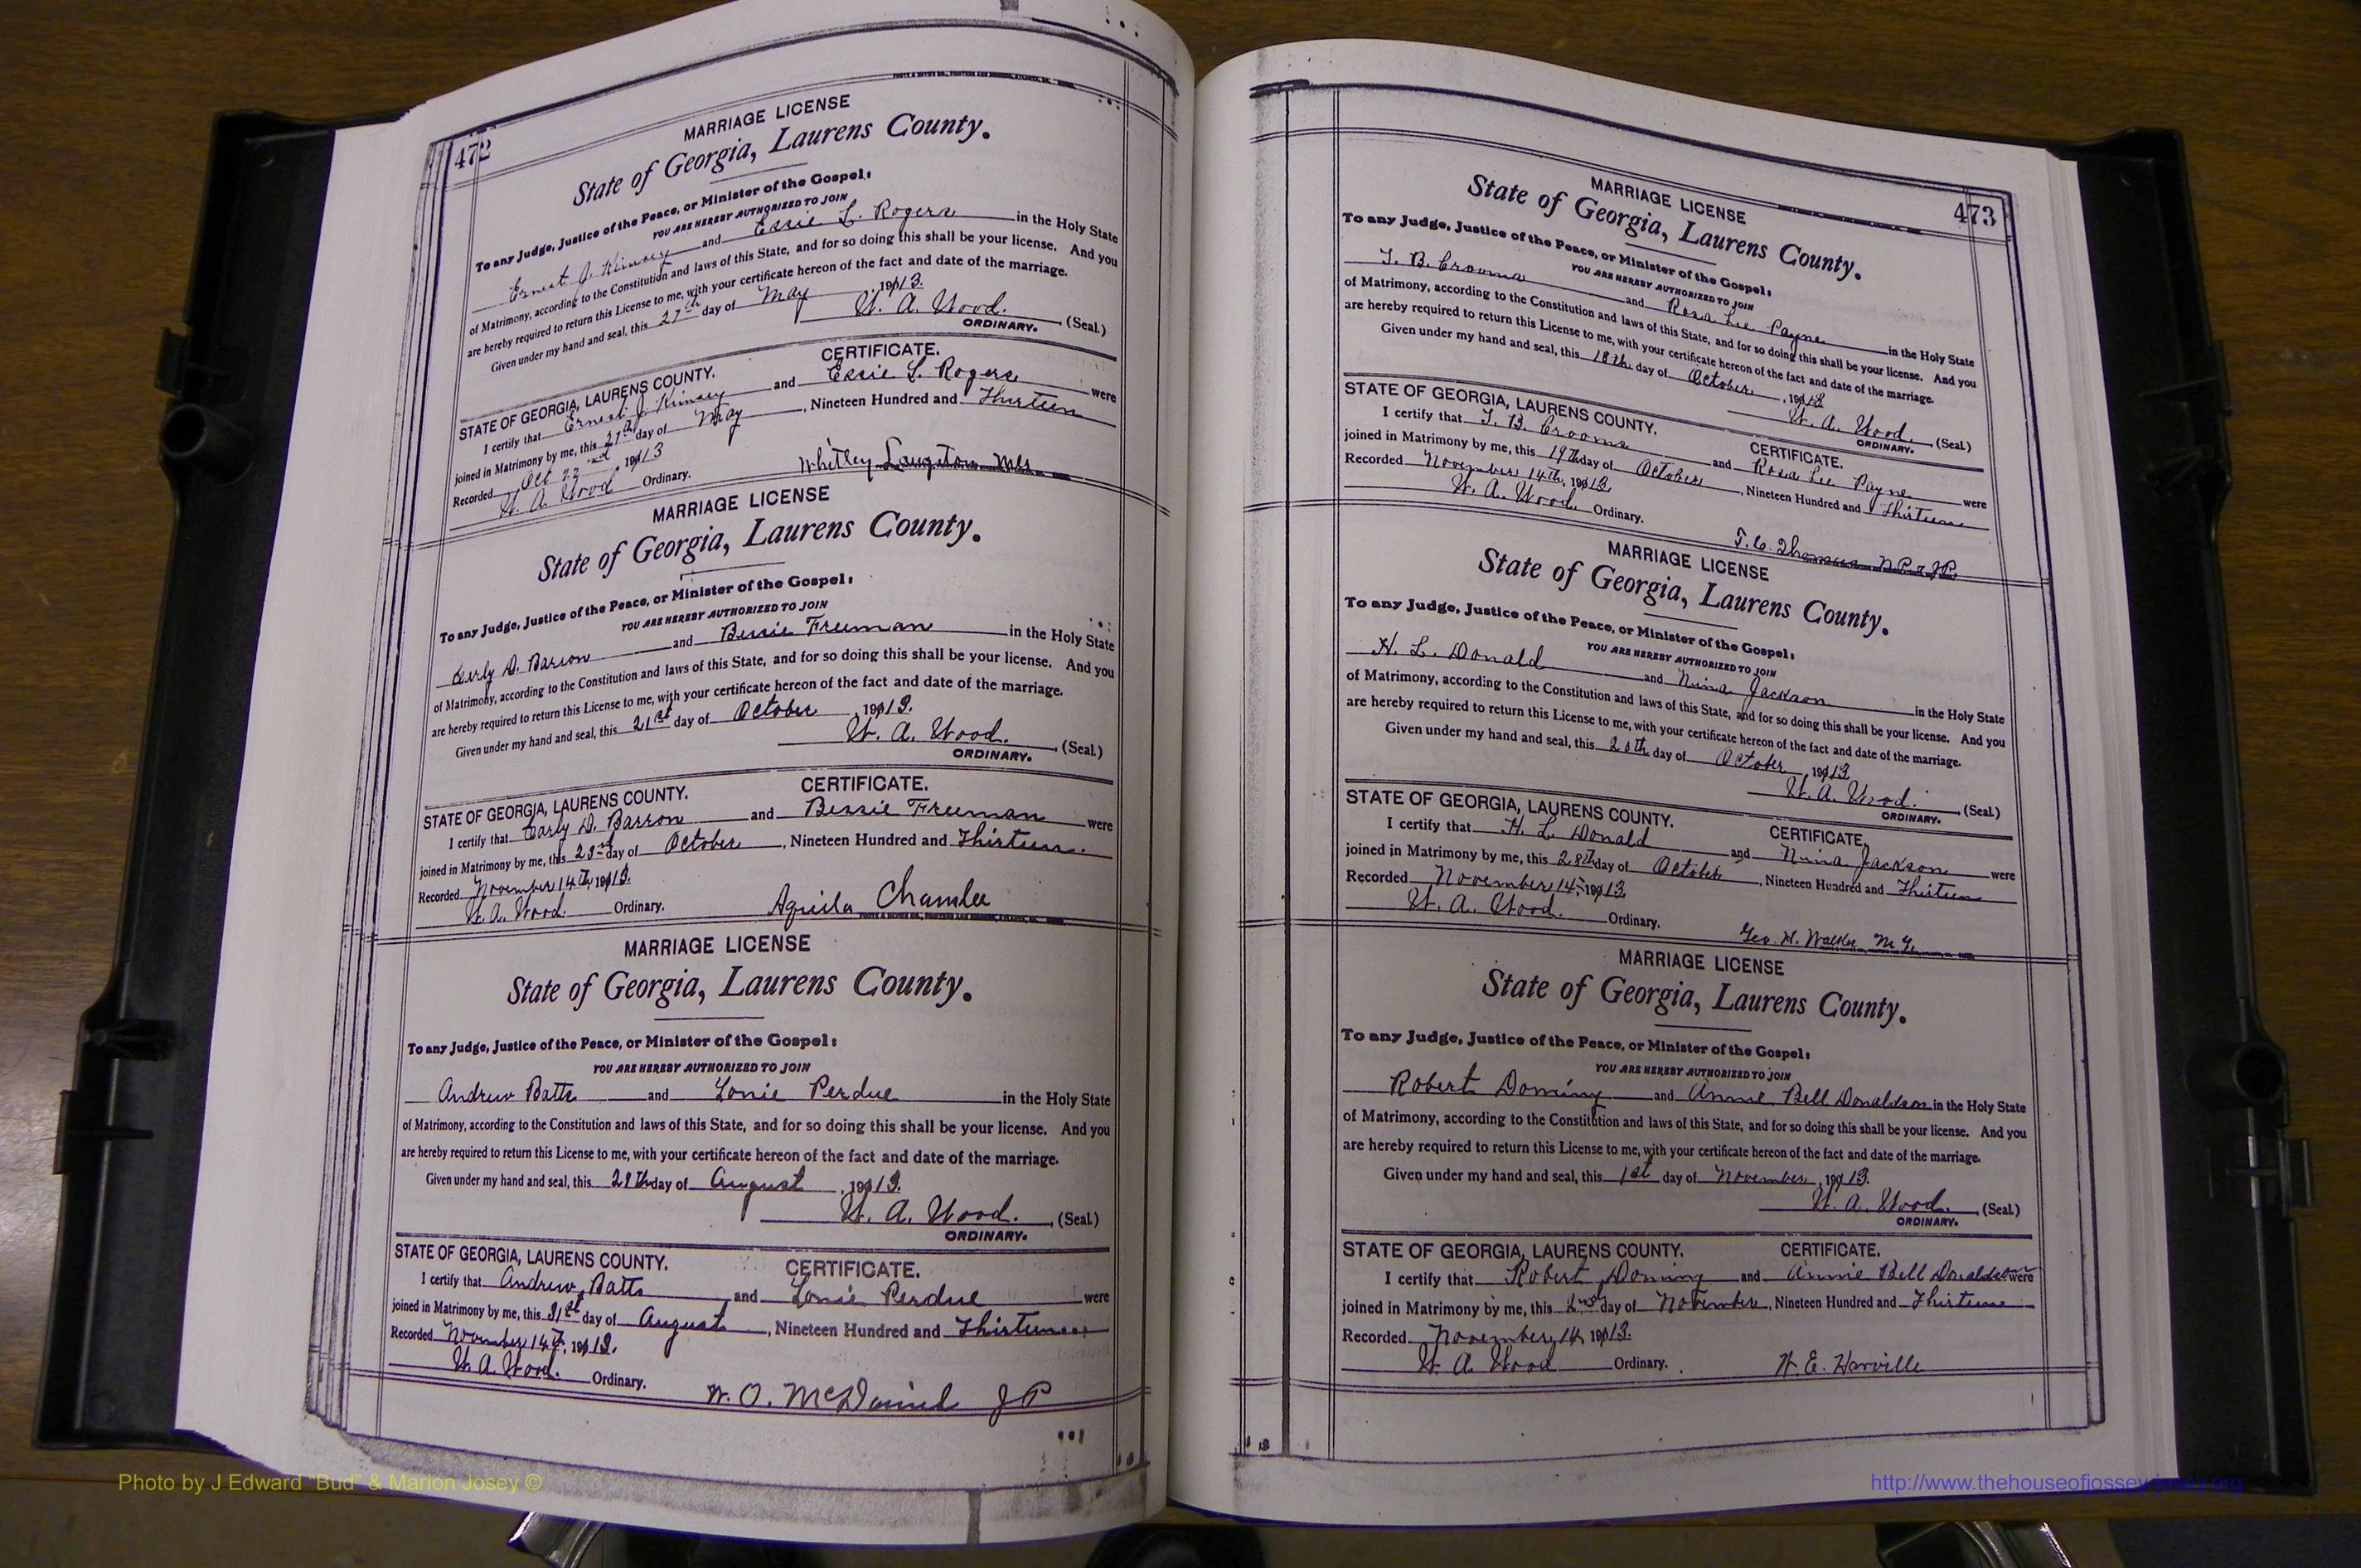 472
MARRIAGE LICENSE
State of Georgia, Laurens County.
To any Judge, Justice of the Peace, or Minister of the Gospel:
YOU ARE HEREBY AUTHORIZED TO JOIN
Ernest J. Kimsey and Essie L. Rogers in the Holy State
of Matrimony, according to the Constitution and laws of this State, and for so doing this shall be your license. And you
are hereby required to return this License to me, with your certificate hereon of the fact and date of the marriage.
Given under my hand and seal, this 27th day of May, 1913.
W. A. Wood. (Seal.)
ORDINARY.
STATE OF GEORGIA, LAURENS COUNTY. CERTIFICATE.
I certify that Ernest J. Kimsey and Essie L. Rogers were
joined in Matrimony by me, this 27th day of May, Nineteen Hundred and Thirteen
Recorded Oct 22nd, 1913
W. A. Wood Ordinary.
Whitley Langston
MARRIAGE LICENSE
State of Georgia, Laurens County.
To any Judge, Justice of the Peace, or Minister of the Gospel:
YOU ARE HEREBY AUTHORIZED TO JOIN
Early D. Barron and Bessie Freeman in the Holy State
of Matrimony, according to the Constitution and laws of this State, and for so doing this shall be your license. And you
are hereby required to return this License to me, with your certificate hereon of the fact and date of the marriage.
Given under my hand and seal, this 21st day of October, 1913.
W. A. Wood. (Seal.)
ORDINARY.
STATE OF GEORGIA, LAURENS COUNTY. CERTIFICATE.
I certify that Early D. Barron and Bessie Freeman were
joined in Matrimony by me, this 23rd day of October, Nineteen Hundred and Thirteen.
Recorded November 14th, 1913.
W. A. Wood. Ordinary.
Aquila Chamlee
MARRIAGE LICENSE
State of Georgia, Laurens County.
To any Judge, Justice of the Peace, or Minister of the Gospel:
YOU ARE HEREBY AUTHORIZED TO JOIN
Andrew Batts and Lonie Perdue in the Holy State
of Matrimony, according to the Constitution and laws of this State, and for so doing this shall be your license. And you
are hereby required to return this License to me, with your certificate hereon of the fact and date of the marriage.
Given under my hand and seal, this 29th day of August, 1913.
W. A. Wood. (Seal.)
ORDINARY.
STATE OF GEORGIA, LAURENS COUNTY. CERTIFICATE.
I certify that Andrew Batts and Lonie Perdue were
joined in Matrimony by me, this 31st day of August, Nineteen Hundred and Thirteen
Recorded November 14th, 1913.
W. A. Wood. Ordinary.
W. O. McDaniel JP
473
MARRIAGE LICENSE
State of Georgia, Laurens County.
To any Judge, Justice of the Peace, or Minister of the Gospel:
YOU ARE HEREBY AUTHORIZED TO JOIN
T. B. Crooms and Rosa Lee Payne in the Holy State
of Matrimony, according to the Constitution and laws of this State, and for so doing this shall be your license. And you
are hereby required to return this License to me, with your certificate hereon of the fact and date of the marriage.
Given under my hand and seal, this 18th day of October, 1913
W. A. Wood. (Seal.)
ORDINARY.
STATE OF GEORGIA, LAURENS COUNTY. CERTIFICATE.
I certify that T. B. Crooms and Rosa Lee Payne were
joined in Matrimony by me, this 19th day of October, Nineteen Hundred and Thirteen
Recorded November 14th, 1913.
W. A. Wood. Ordinary.
T. C. Thomas N.P. & J.P.
MARRIAGE LICENSE
State of Georgia, Laurens County.
To any Judge, Justice of the Peace, or Minister of the Gospel:
YOU ARE HEREBY AUTHORIZED TO JOIN
H. L. Donald and Nina Jackson in the Holy State
of Matrimony, according to the Constitution and laws of this State, and for so doing this shall be your license. And you
are hereby required to return this License to me, with your certificate hereon of the fact and date of the marriage.
Given under my hand and seal, this day of October, 1913
W. A. Wood. (Seal.)
ORDINARY.
STATE OF GEORGIA, LAURENS COUNTY. CERTIFICATE.
I certify that H. L. Donald and Nina Jackson were
joined in Matrimony by me, this 28th day of October, Nineteen Hundred and Thirteen
Recorded November 14, 1913
W. A. Wood. Ordinary.
Geo. H. Walker M.G.
MARRIAGE LICENSE
State of Georgia, Laurens County.
To any Judge, Justice of the Peace, or Minister of the Gospel:
YOU ARE HEREBY AUTHORIZED TO JOIN
Robert Doming and Annie Bell Donaldson in the Holy State
of Matrimony, according to the Constitution and laws of this State, and for so doing this shall be your license. And you
are hereby required to return this License to me, with your certificate hereon of the fact and date of the marriage.
Given under my hand and seal, this 1st day of November, 1913.
W. A. Wood. (Seal.)
ORDINARY.
STATE OF GEORGIA, LAURENS COUNTY. CERTIFICATE.
I certify that Robert Doming and Annie Bell Donaldson were
joined in Matrimony by me, this 2nd day of November, Nineteen Hundred and Thirteen
Recorded November 14, 1913.
W. A. Wood Ordinary.
W. E. Harville
Photo by J Edward "Bud" & Marion Josey ©
http://www.thehouseofjossey-josey.org